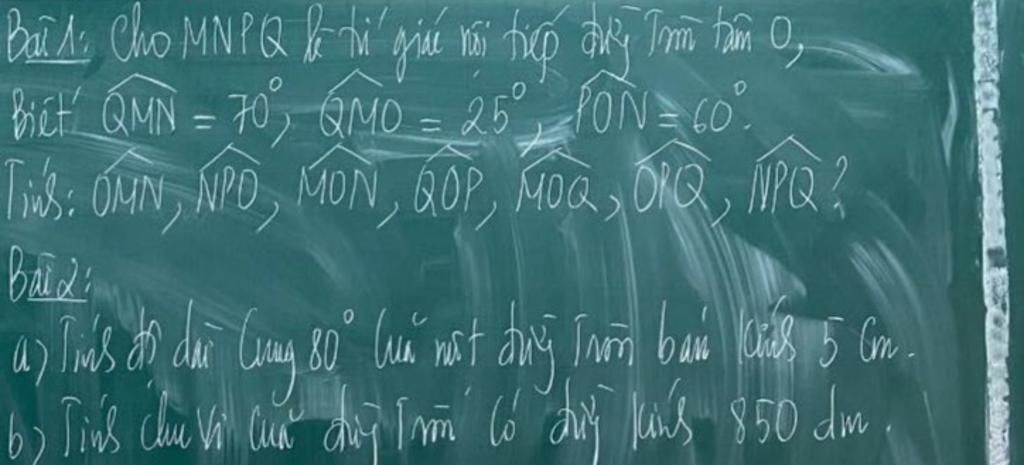 Bài 1: Cho MNPQ là tứ giác nội tiếp đường tròn tâm O,
Biết \widehat{QMN} = 70°, \widehat{QMO} = 25°, \widehat{PON} = 60°.
Tính: \widehat{OMN}, \widehat{NPO}, \widehat{MON}, \widehat{QOP}, \widehat{MOQ}, \widehat{OPQ}, \widehat{NPQ}?
Bài 2:
a) Tính độ dài cung 80° của một đường tròn bán kính 5 cm.
b) Tính chu vi của đường tròn có đường kính 850 dm.